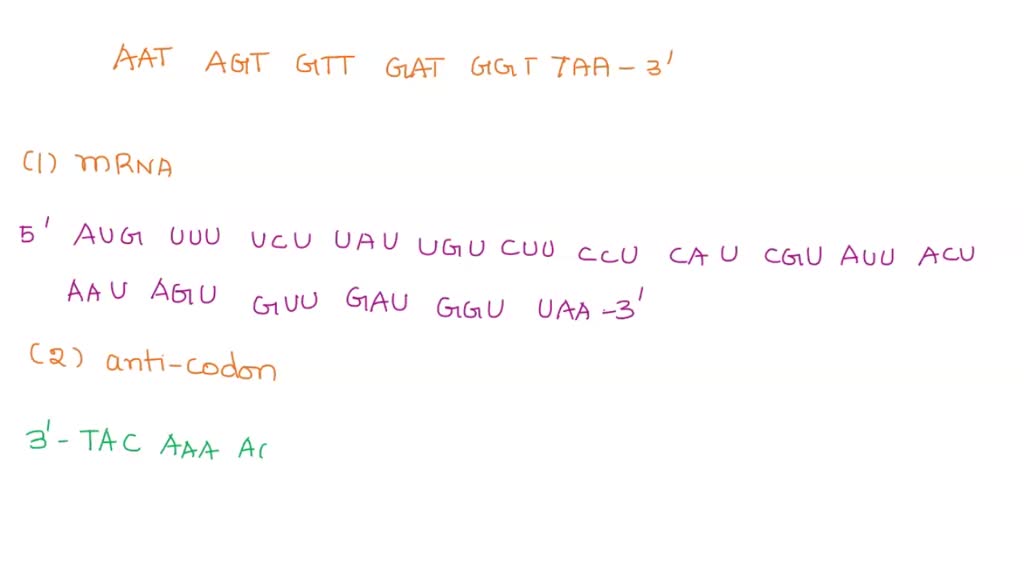 AAT AGT GTT GAT GGT TAA - 3'
(1) mRNA
5' AUG UUU UCU UAU UGU CUU CCU CAU CGU AUU ACU
AAU AGU GUU GAU GGU UAA -3'
(2) anti-codon
3'- TAC AAA AC